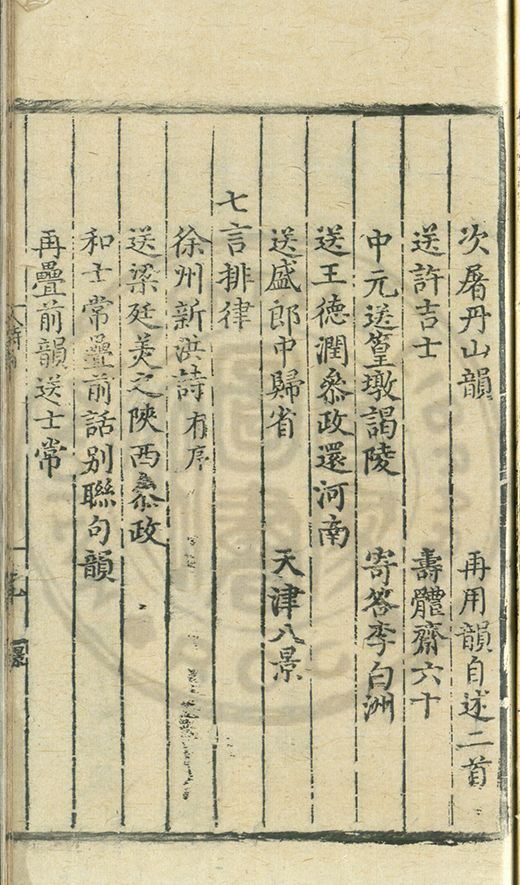 次屠丹山韻　再用韻自述二首
送許吉士　壽體齋六十
中元送篁墩謁陵　寄答李白洲
送王德潤叅政還河南
送盛郎中歸省　天津八景
七言排律
徐州新洪詩有序
送梁廷美之陝西叅政
和士常疊前話别聯句韻
再疊前韻送士常